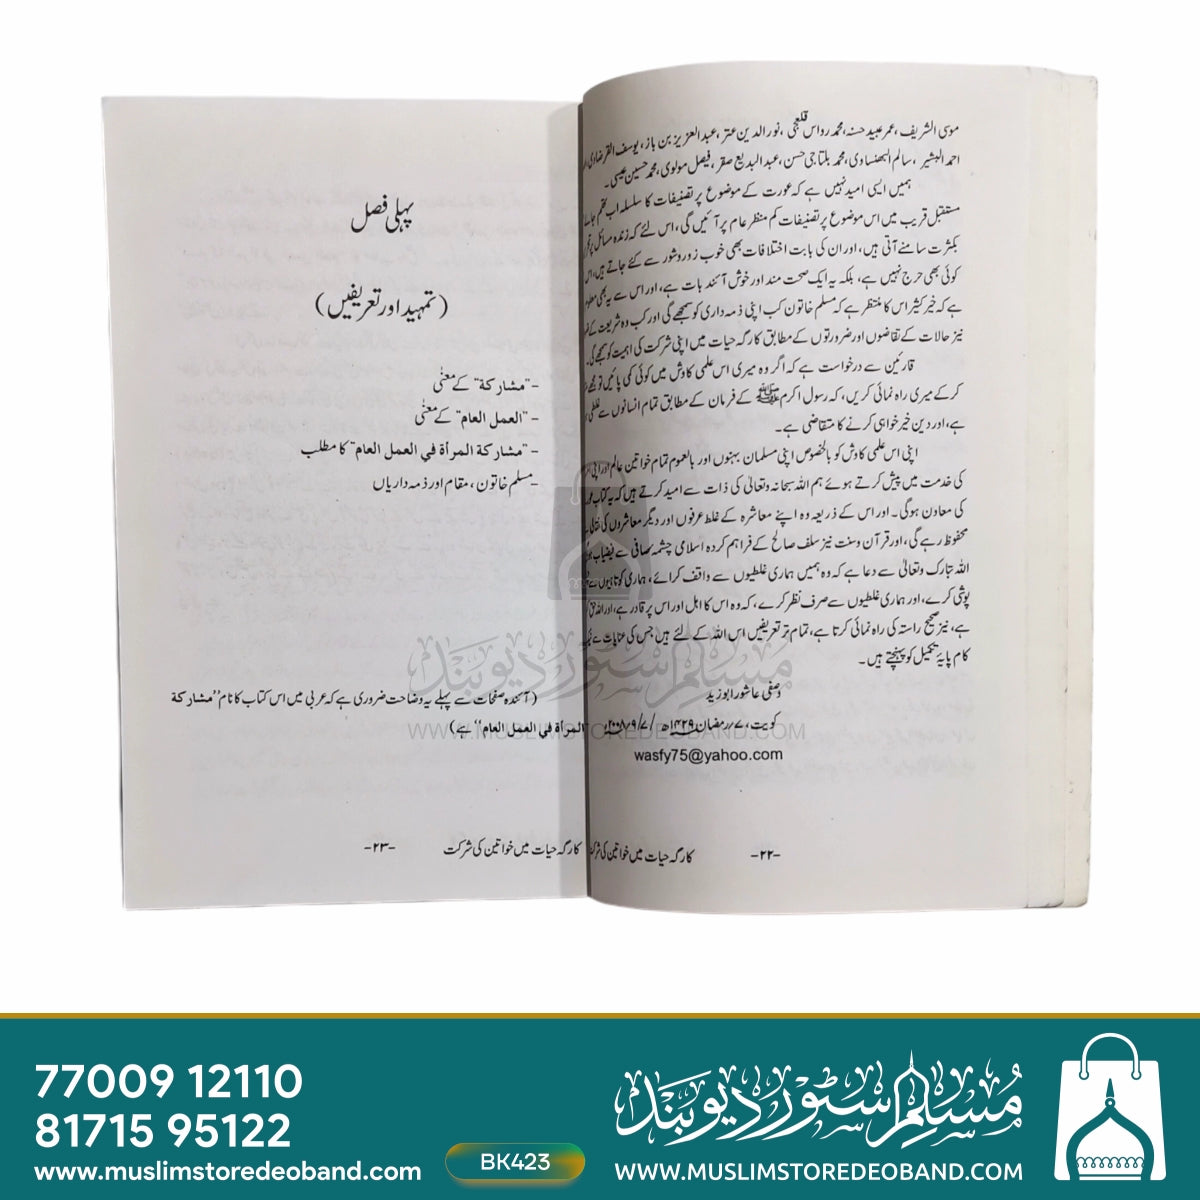 موسی الشریف، عمر عبید حسنہ، محمد رواس قلعجی، نور الدین عتر، عبد العزیز بن باز، یوسف القرضاوی،
احمد البشیر، سالم البھنساوی، محمد بلتاجی حسن، عبد البدیع صقر، فیصل مولوی، محمد حسین عیسی۔
ہمیں ایسی امید نہیں ہے کہ عورت کے موضوع پر تصنیفات کا سلسلہ اب ختم
مستقبل قریب میں اس موضوع پر تصنیفات کم منظر عام پر آئیں گی، اس لئے کہ زندہ مسائل پر
بکثرت سامنے آتی ہیں، اور ان کی بابت اختلافات بھی خوب زور و شور سے کئے جاتے ہیں، اس
کوئی بھی حرج نہیں ہے، بلکہ یہ ایک صحت مند اور خوش آئند بات ہے، اور اس سے یہ بھی معلوم
ہے کہ خیر کثیر اس کا منتظر ہے کہ مسلم خاتون کب اپنی ذمہ داری کو سمجھے گی اور کب وہ شریعت کے
نیز حالات کے تقاضوں اور ضرورتوں کے مطابق کارگہ حیات میں اپنی شرکت کی اہمیت کو سمجھے گی۔
قارئین سے درخواست ہے کہ اگر وہ میری اس علمی کاوش میں کوئی کمی پائیں تو مجھے
کرکے میری راہ نمائی کریں، کہ رسول اکرم ﷺ کے فرمان کے مطابق تمام انسانوں سے غلطی
ہے، اور دین خیر خواہی کرنے کا متقاضی ہے۔
اپنی اس علمی کاوش کو بالخصوص اپنی مسلمان بہنوں اور بالعموم تمام خواتین عالم اور اپنی
کی خدمت میں پیش کرتے ہوئے ہم اللہ سبحانہ وتعالی کی ذات سے امید کرتے ہیں کہ یہ کتاب
کی معاون ہوگی۔ اور اس کے ذریعہ وہ اپنے معاشرہ کے غلط عرفوں اور دیگر معاشروں کی نقالی
محفوظ رہے گی، اور قرآن وسنت نیز سلف صالح کے فراہم کردہ اسلامی چشمہ صافی سے فیضیاب
اللہ تبارک وتعالی سے دعا ہے کہ وہ ہمیں ہماری غلطیوں سے واقف کرائے، ہماری کوتاہیوں سے
پوشی کرے، اور ہماری غلطیوں سے صرف نظر کرے، کہ وہ اس کا اہل اور اس پر قادر ہے، اور اللہ
ہے، نیز صحیح راستہ کی راہ نمائی کرتا ہے، تمام تر تعریفیں اس اللہ کے لئے ہیں جس کی عنایات سے
کام پایۂ تکمیل کو پہنچتے ہیں۔
وصفی عاشور ابو زید
کویت، ۷؍رمضان ۱۴۲۹ھ / ۷/۹/۲۰۰۸ء
wasfy75@yahoo.com
-۲۲- کارگہ حیات میں خواتین کی شرکت
پہلی فصل
(تمہید اور تعریفیں)
-"مشارکة" کے معنیٰ
-"العمل العام" کے معنیٰ
-"مشاركة المرأة في العمل العام" کا مطلب
-مسلم خاتون، مقام اور ذمہ داریاں
(آئندہ صفحات سے پہلے یہ وضاحت ضروری ہے کہ عربی میں اس کتاب کا نام "مشاركة
المرأة في العمل العام" ہے)
کارگہ حیات میں خواتین کی شرکت -۲۳-
مسلم سٹور دیوبند
WWW.MUSLIMSTOREDEOBAND.COM
77009 12110
81715 95122
www.muslimstoredeoband.com
BK423
مسلم سٹور دیوبند
WWW.MUSLIMSTOREDEOBAND.COM